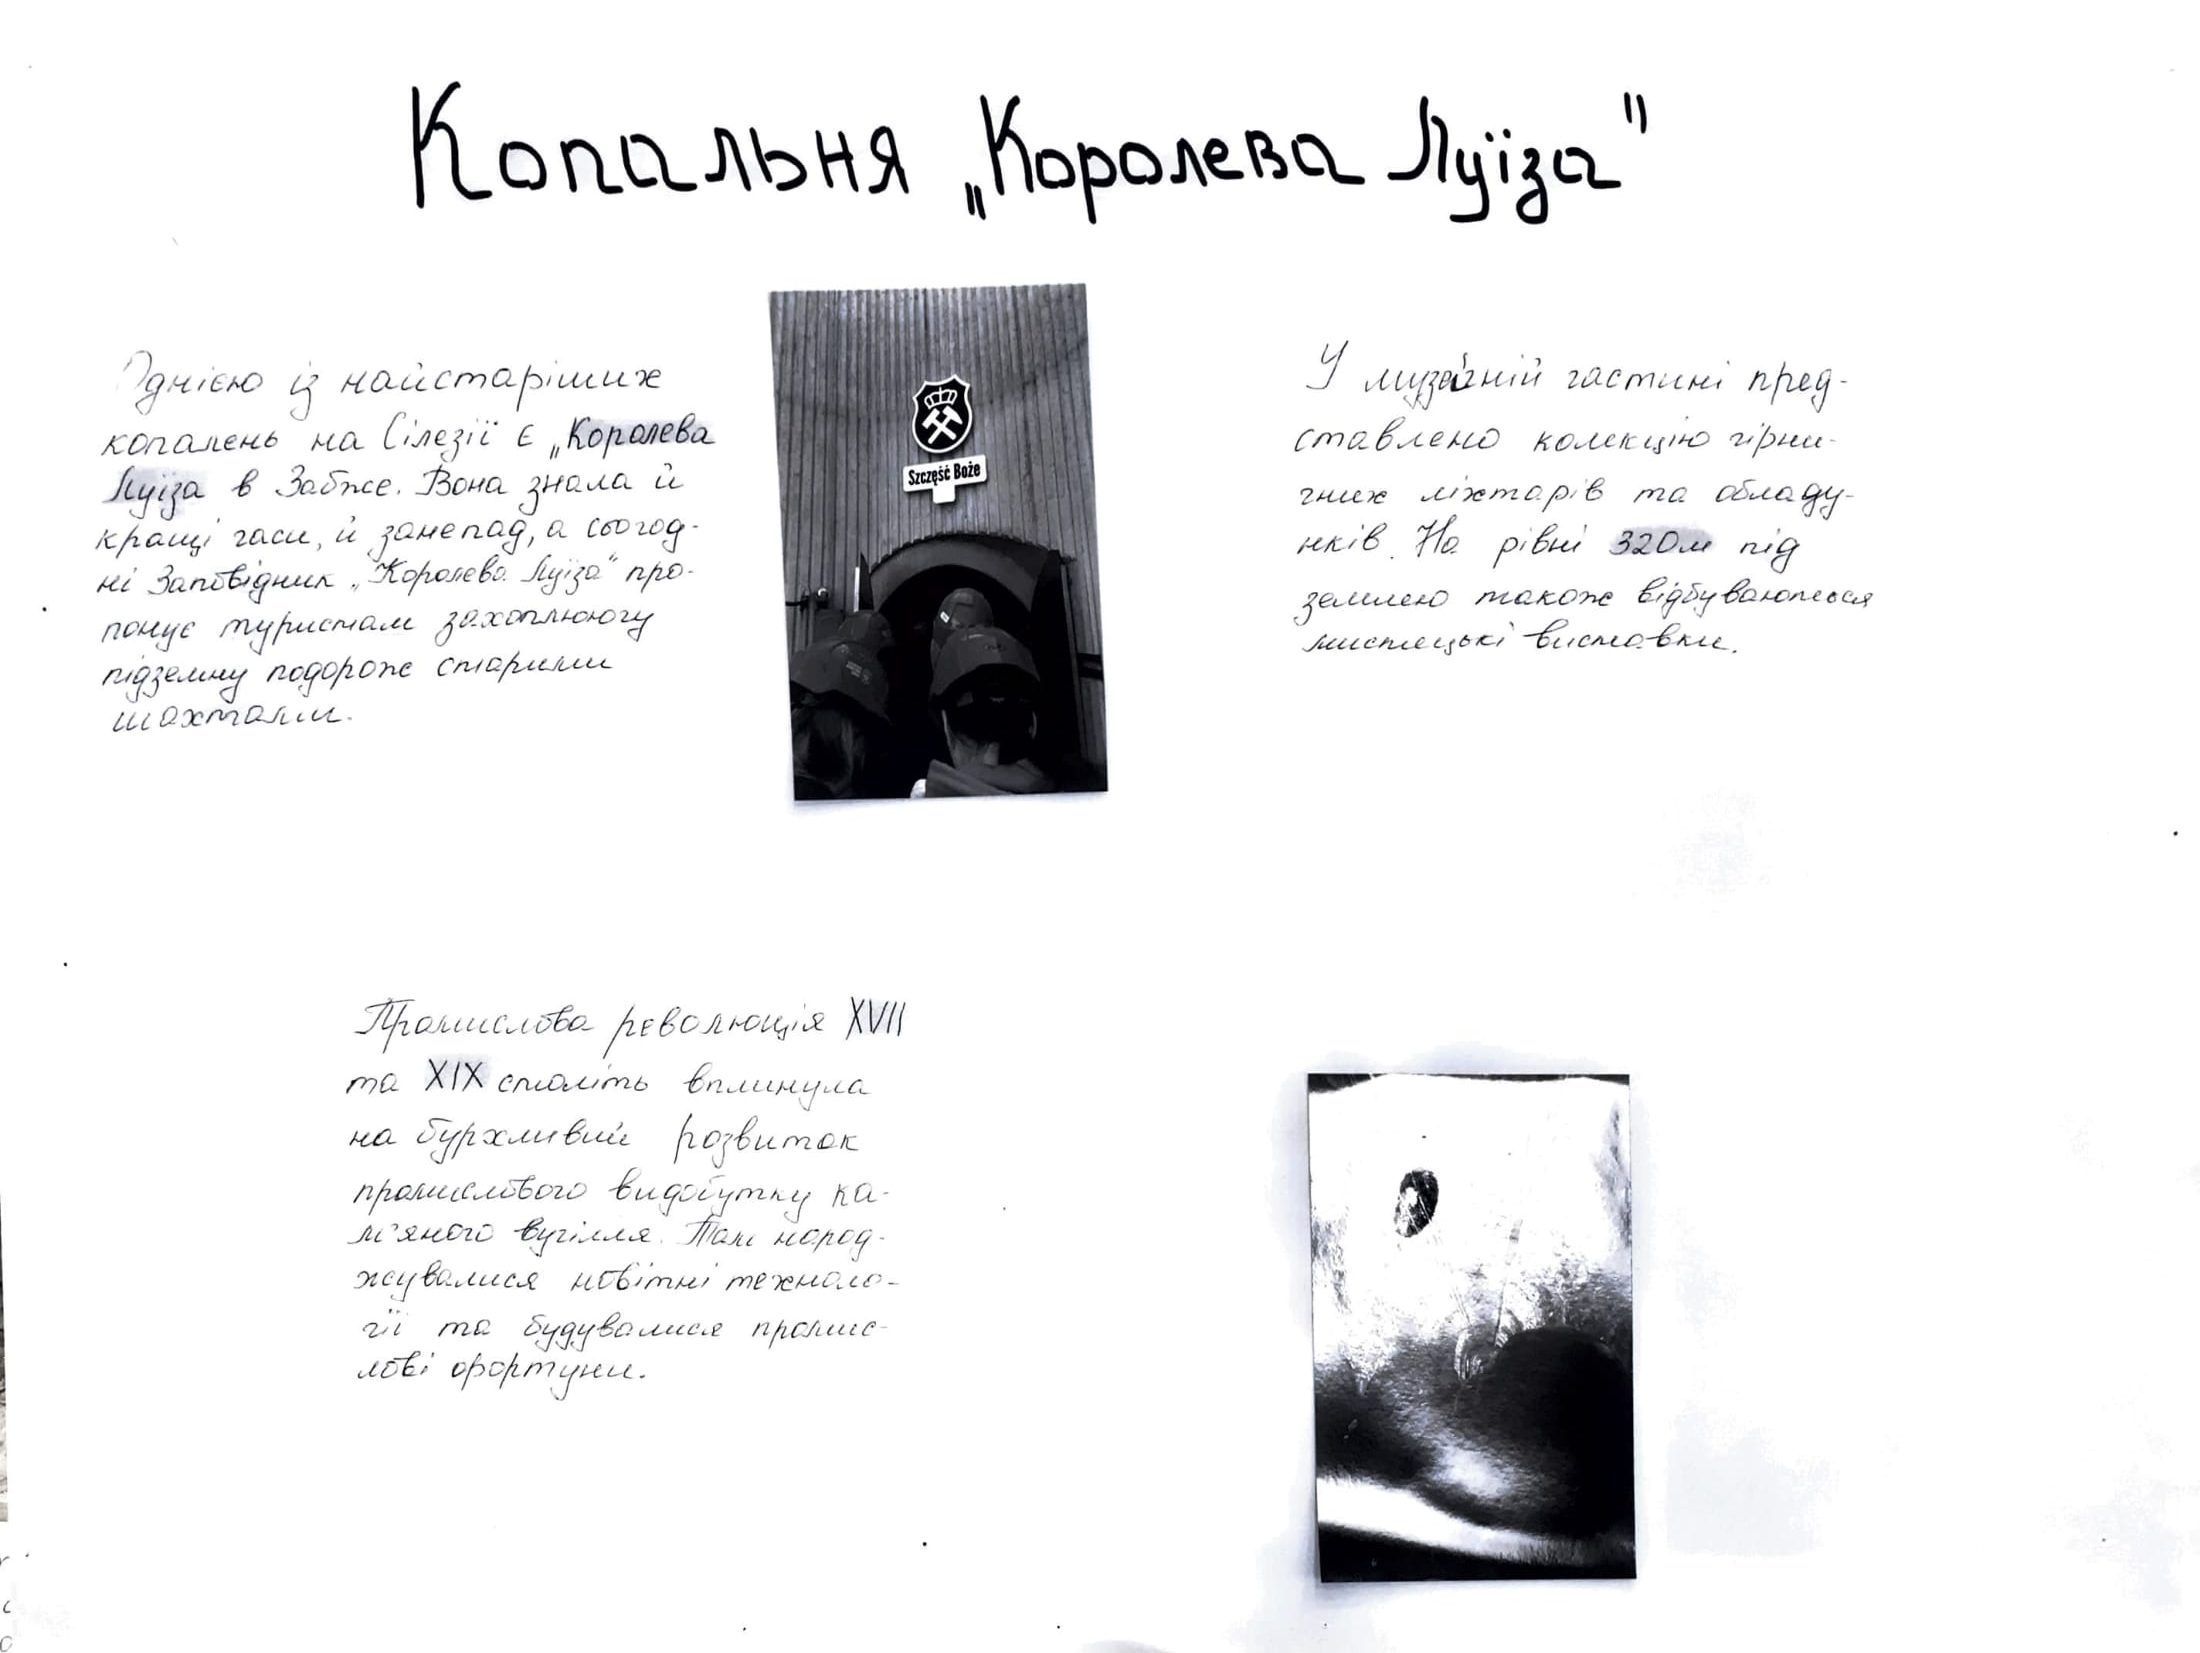 Копальня „Королева Луїза"
Однією із найстаріших
копалень на Сілезії є „Королева
Луїза в Забже. Вона знала й
кращі часи, й занепад, а сьогод-
ні Заповідник „Королева Луїза" про-
понує туристам захоплюючу
підземну подорож старими
шахтами.
Szczęść Boże
У музейній частині пред-
ставлено колекцію гірни-
чних ліхтарів та обладу-
нків. На рівні 320м під
землею також відбуваються
мистецькі виставки.
Промислова революція XVII
та XIX століть вплинула
на бурхливий розвиток
промислового видобутку ка-
м'яного вугілля. Там народ-
жувалися новітні техноло-
гії та будувалися промис-
лові фортуни.